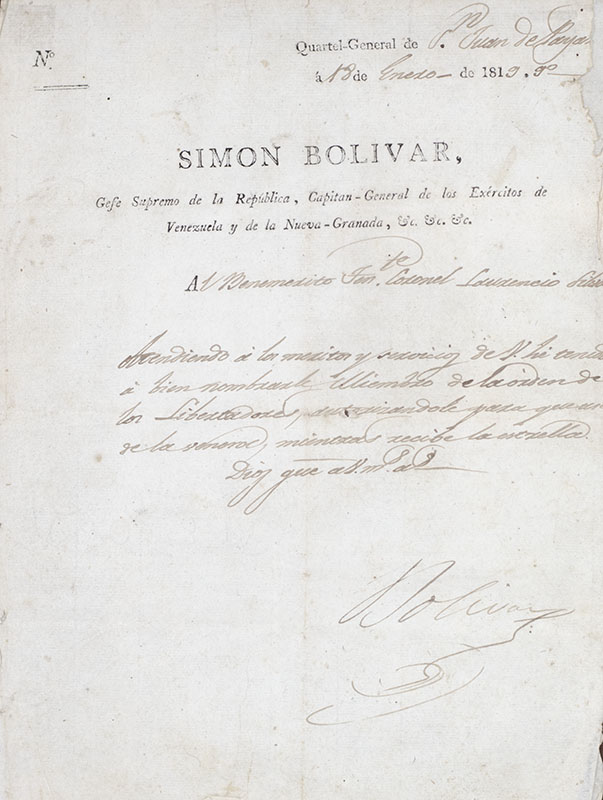 Nº
Quartel-General de Sn. Juan de Paya
á 18 de Enero de 1819. 9º
SIMON BOLIVAR,
Gefe Supremo de la República, Capitan-General de los Exércitos de
Venezuela y de la Nueva-Granada, &c. &c. &c.
Al Benemerito Tente. Coronel Laurencio Silva
Atendiendo á los meritos y servicios de V. hé tenido
á bien nombrarle Miembro de la órden de
los Libertadores, autorizandole para que use
de la venera, mientras recibe la estrella.
Dios gue. a V. ms. as.
Bolivar